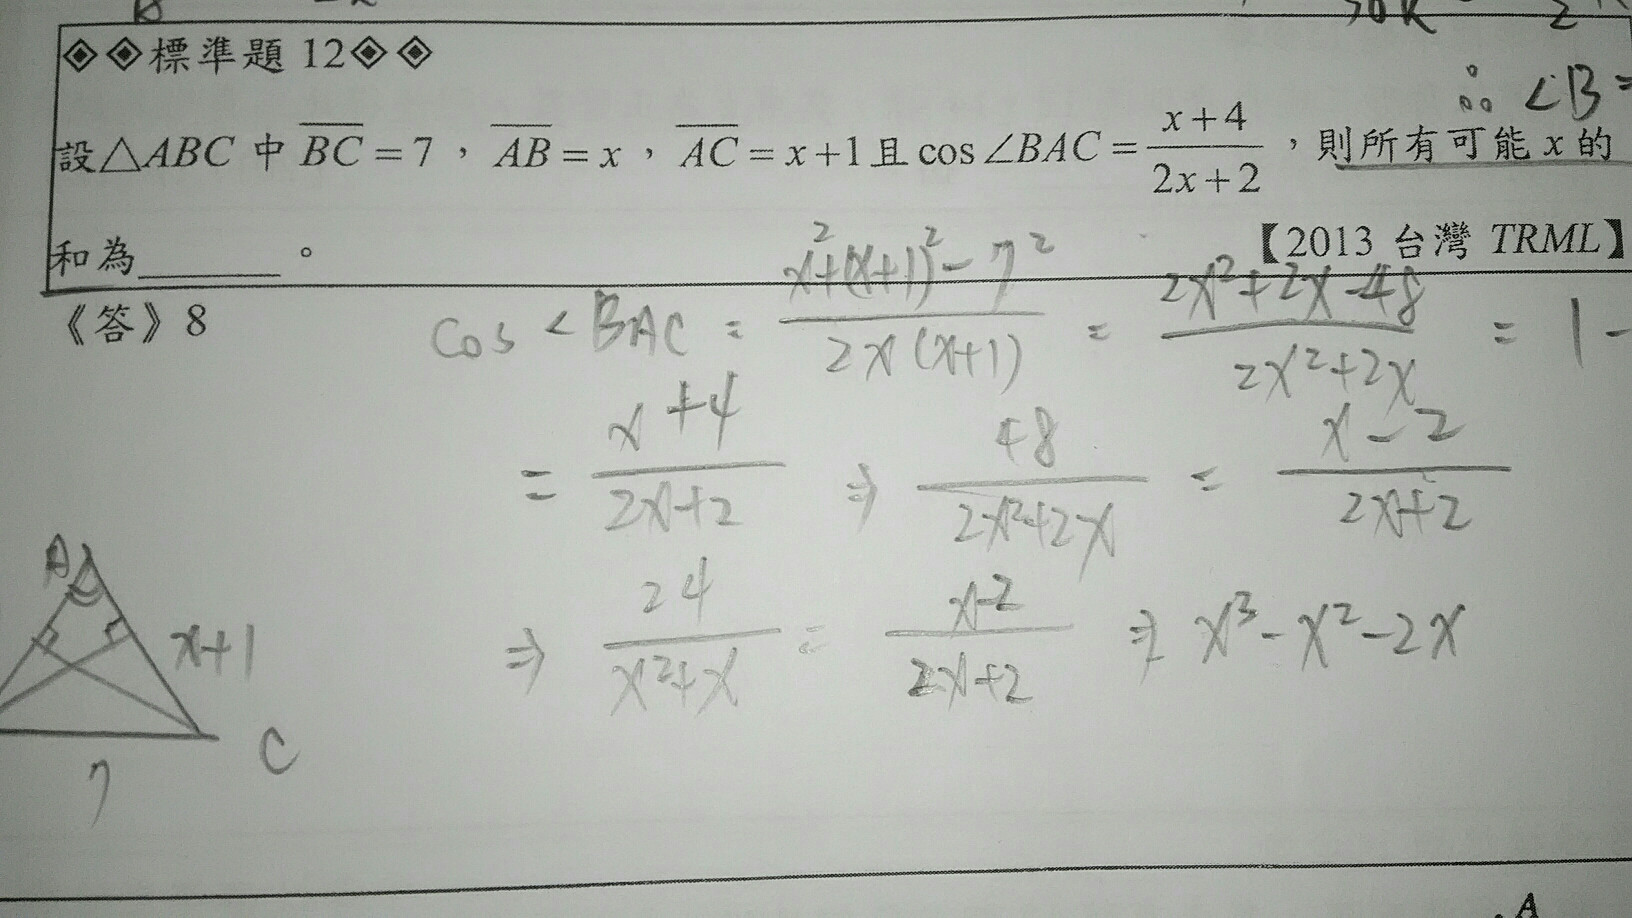 30K 2
◈◈標準題 12◈◈
∴ ∠B=
設△ABC 中 BC = 7,AB = x,AC = x+1且 cos∠BAC = (x+4)/(2x+2),則所有可能 x 的
和為______。 【2013 台灣 TRML】
《答》8
cos∠BAC = (x²+(x+1)²-7²)/(2x(x+1)) = (2x²+2x-48)/(2x²+2x) = 1-
= (x+4)/(2x+2) ⇒ 48/(2x²+2x) = (x-2)/(2x+2)
⇒ 24/(x²+x) = (x-2)/(2x+2) ⇒ x³-x²-2x
A
x+1
C
7
A